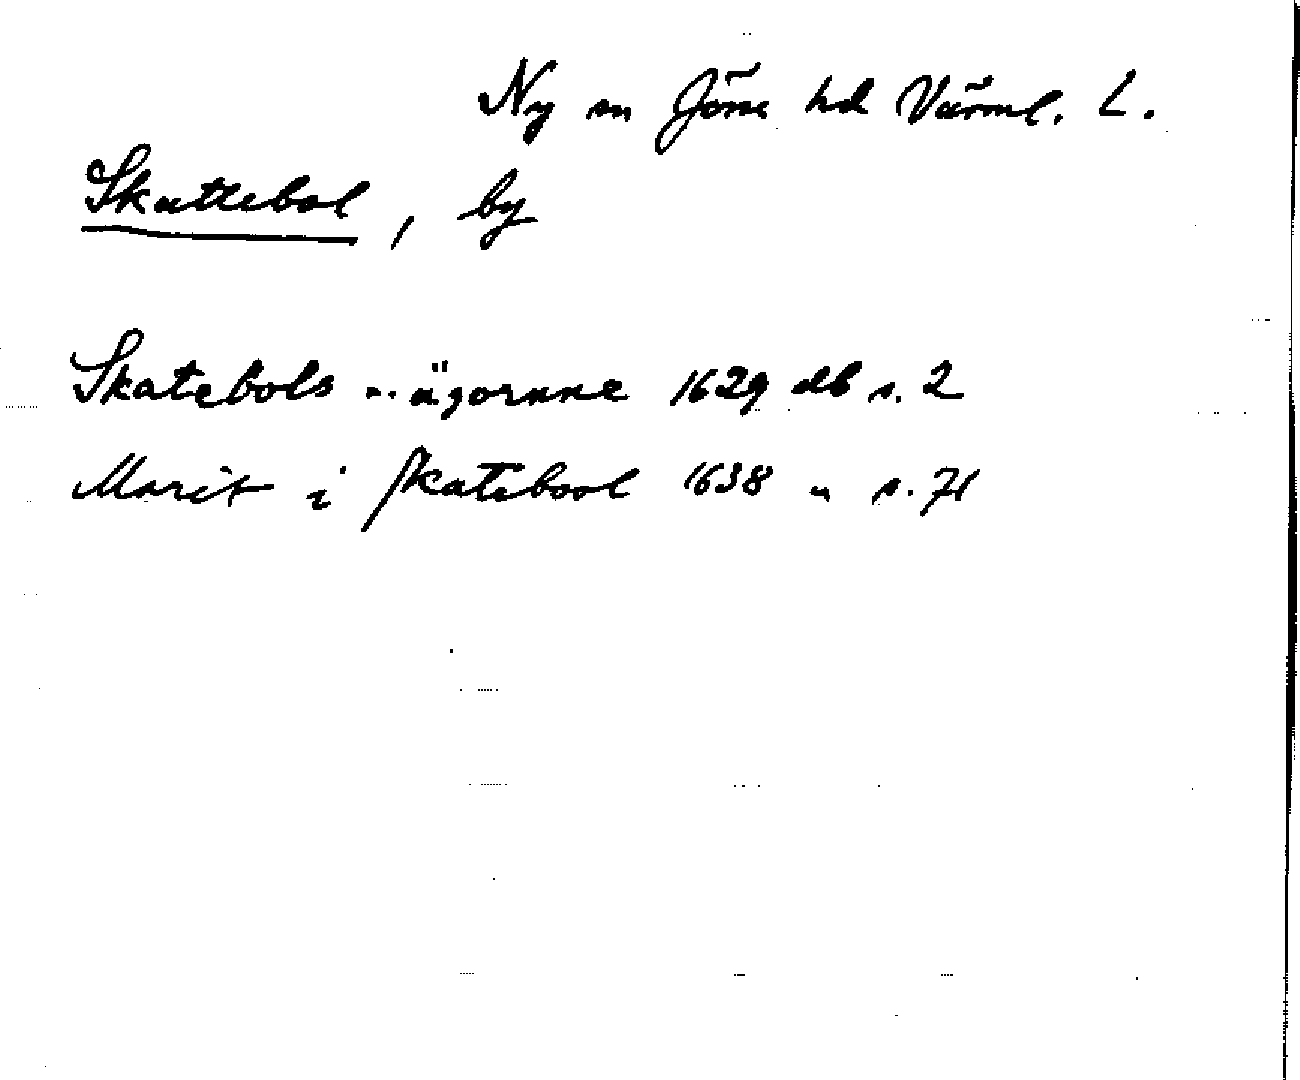 Ny sn Jöse hd Värml. L.
Skattebol, by
Skatebols ... ägornne 1629 db s. 2
Marit i skatebool 1638 " s. 71